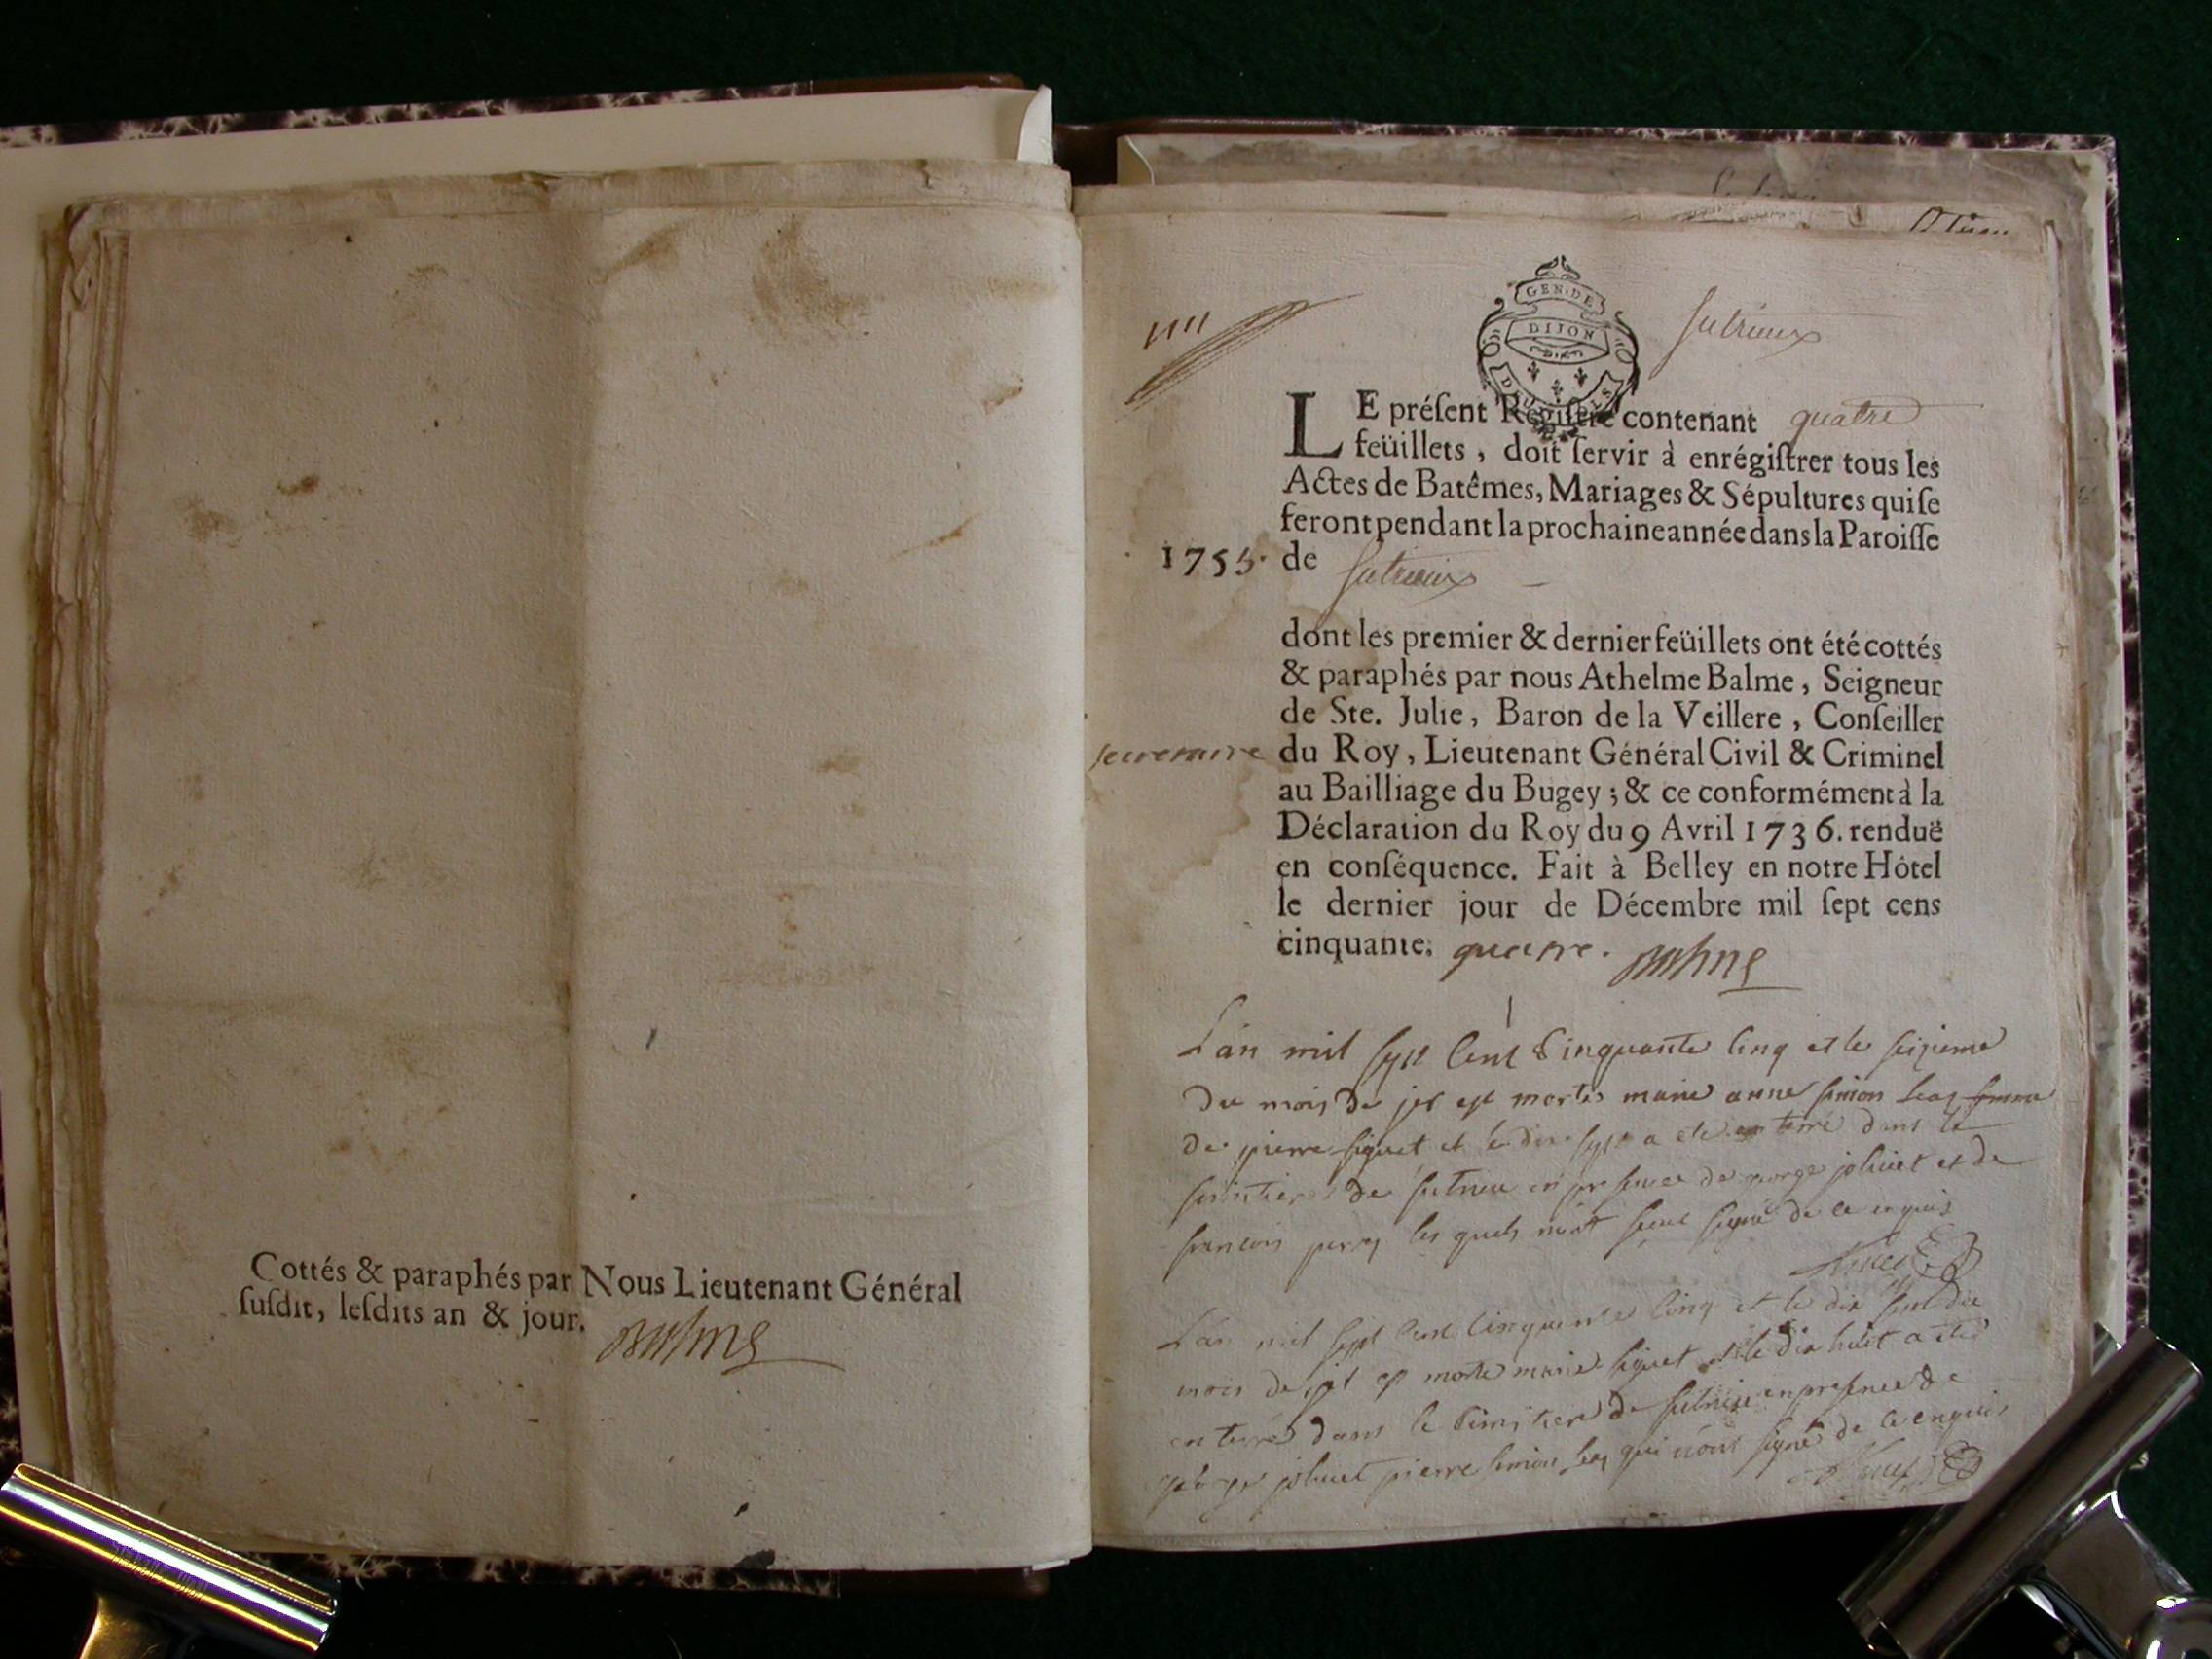 Cottés & paraphés par Nous Lieutenant Général
ſuſdit, leſdits an & jour.
Balme
GEN·DE
DIJON
Sutrieux
LE préſent Regiſtre contenant quatre
feüillets, doit ſervir à enrégiſtrer tous les
Actes de Batêmes, Mariages & Sépultures qui ſe
feront pendant la prochaine année dans la Paroiſſe
1755. de Sutrieux
dont les premier & dernier feüillets ont été cottés
& paraphés par nous Athelme Balme, Seigneur
de Ste. Julie, Baron de la Veillere, Conſeiller
secretaire du Roy, Lieutenant Général Civil & Criminel
au Bailliage du Bugey ; & ce conformément à la
Déclaration du Roy du 9 Avril 1736. renduë
en conſéquence. Fait à Belley en notre Hôtel
le dernier jour de Décembre mil ſept cens
cinquante. quatre. Balme
L'an mil sept Cent Cinquante Cinq et le seizieme
du mois de est morte marie anne simon
de pierre siguet et le dix sept a ete enterré dans le
de sutrieu en presence de george joliuet et de
francois les quels n'ont signé de ce enquis
L'an mil sept Cent Cinquante Cinq et le dix sept du
mois de est morte marie siguet et le dix huit a été
enterré dans le Cimitiere de sutrieu en presence de
george joliuet pierre simon qui n'ont signé de ce enquis